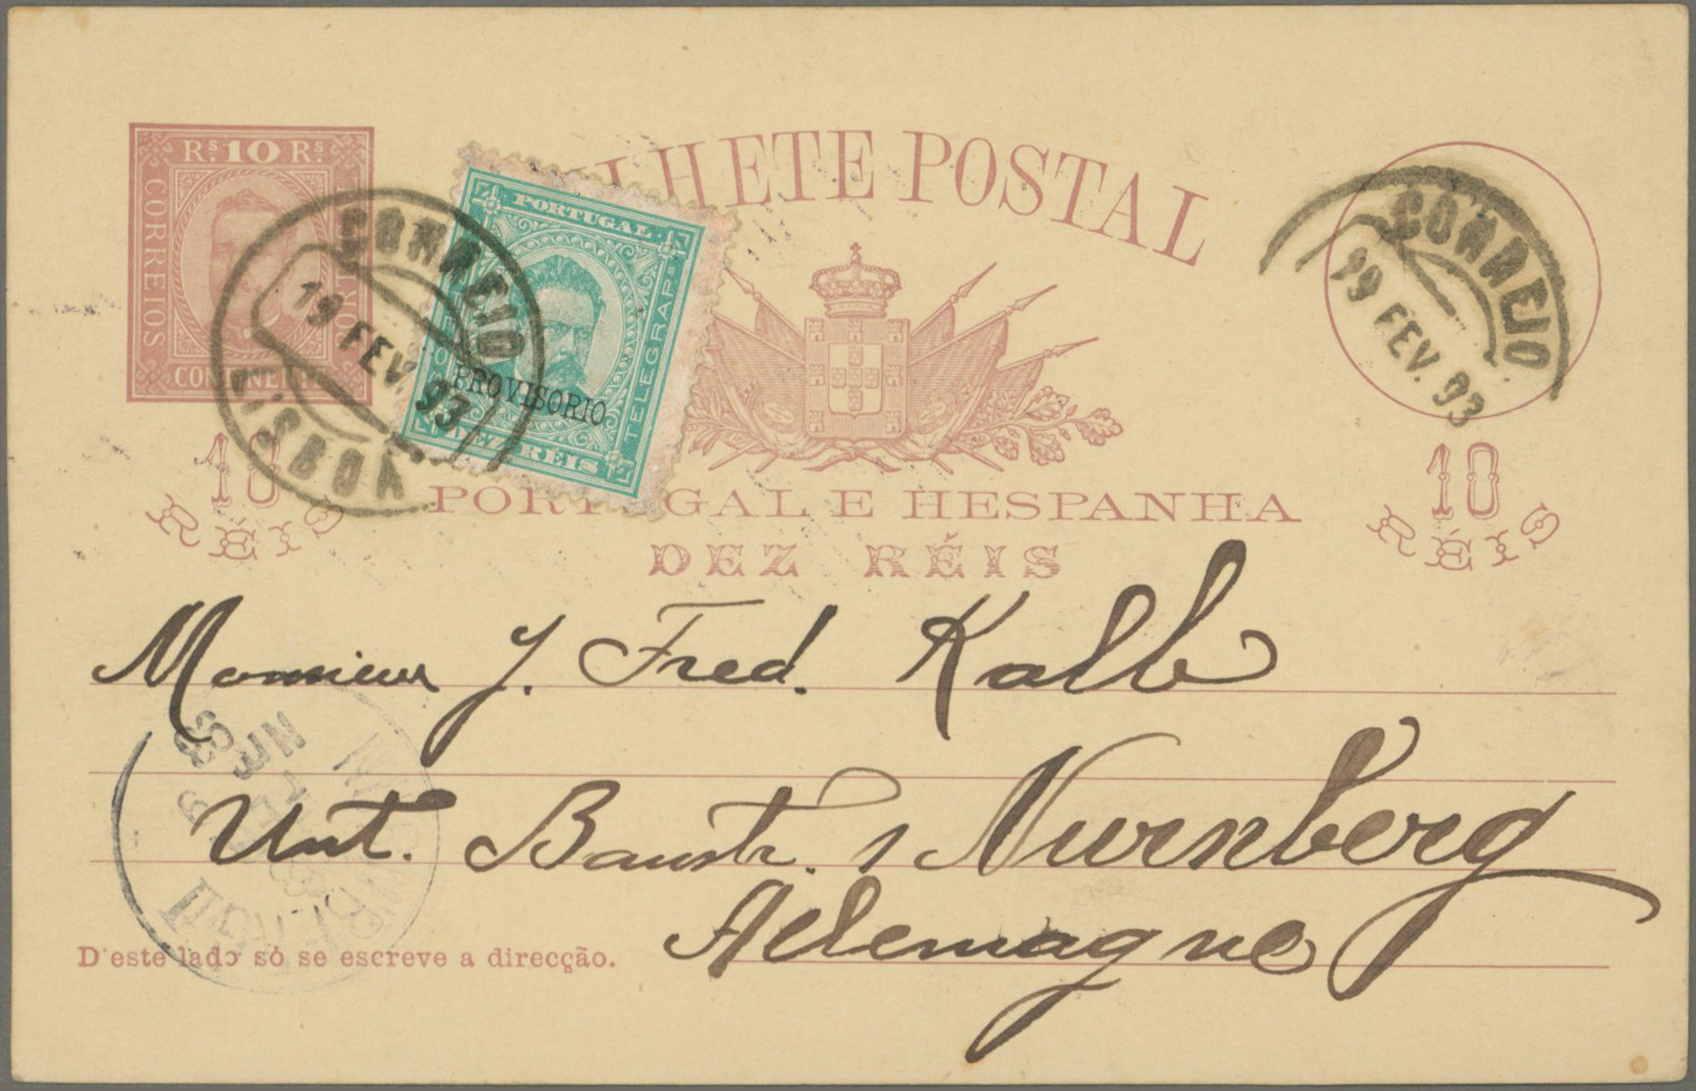 Rs. 10 Rs.
CORREIOS
CONTINEN
PORTUGAL
TELEGRAPS
PROVISORIO
DEZ REIS
LHETE POSTAL
CORREIO
19 FEV. 93
LISBOA
CORREIO
19 FEV. 93
10
RÉIS
PORTUGAL E HESPANHA
DEZ RÉIS
10
RÉIS
Monsieur J. Fred. Kalb
Unt. Baustr. 1 Nurnberg
Allemagne
D'este lado só se escreve a direcção.